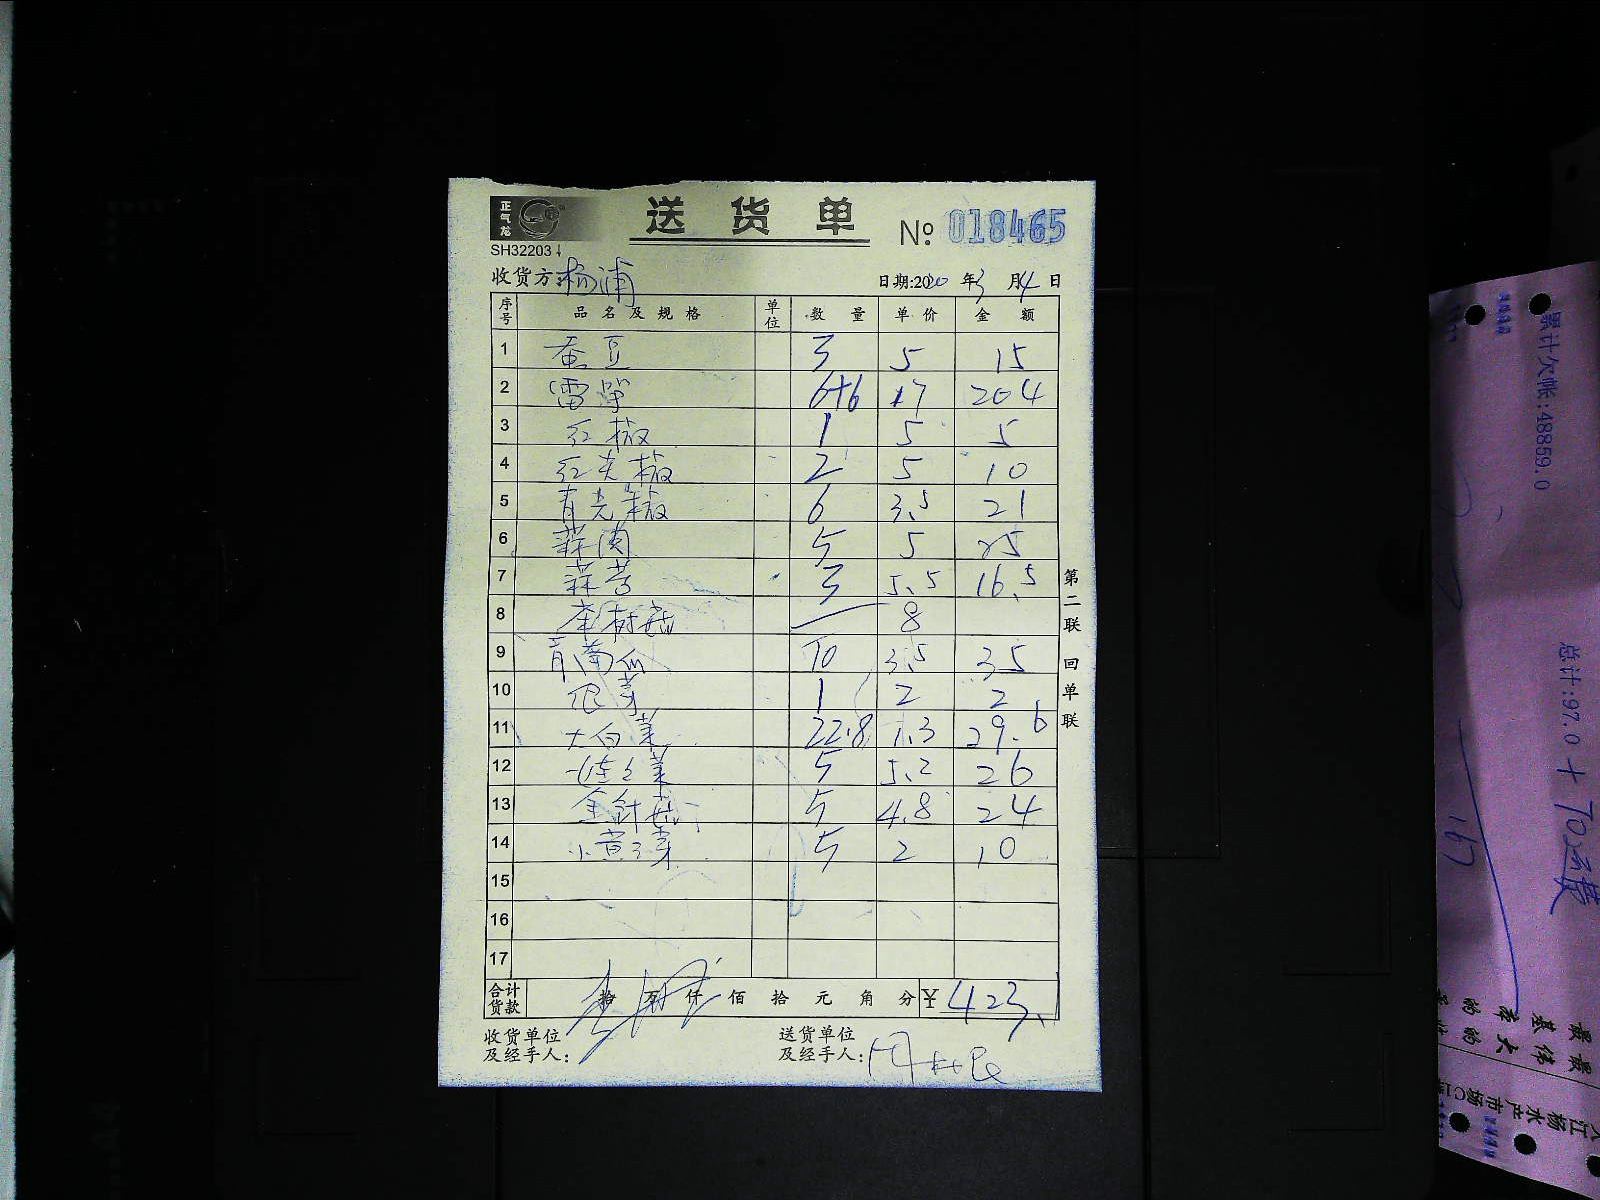 正气龙
送货单
№ 018465
SH32203
收货方:杨浦 日期:2020年3月4日
序号 品名及规格 单位 数量 单价 金额
1 蚕豆 3 5 15
2 雷笋 6+6 17 204
3 红椒 1 5 5
4 红尖椒 2 5 10
5 青尖椒 6 3.5 21
6 蒜肉 5 5 25
7 蒜苔 3 5.5 16.5
8 茶树菇 — 8
9 青南瓜 10 3.5 35
10 银芽 1 2 2
11 大白菜 22.8 1.3 29.6
12 娃娃菜 5 5.2 26
13 金针菇 5 4.8 24
14 小黄豆芽 5 2 10
15
16
17
合计货款 拾 万 仟 佰 拾 元 角 分 ¥423.1
收货单位及经手人: 送货单位及经手人:
第二联 回单联
累计欠帐:48859.0
总计:97.0 + 10运费